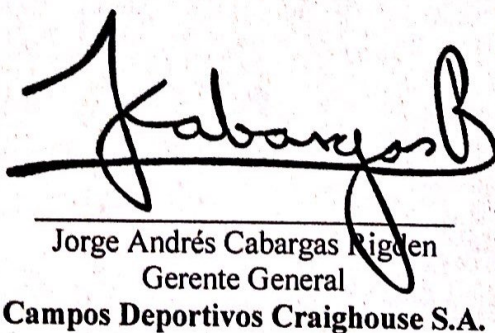 JCabargasR
Jorge Andrés Cabargas Rigden
Gerente General
Campos Deportivos Craighouse S.A.